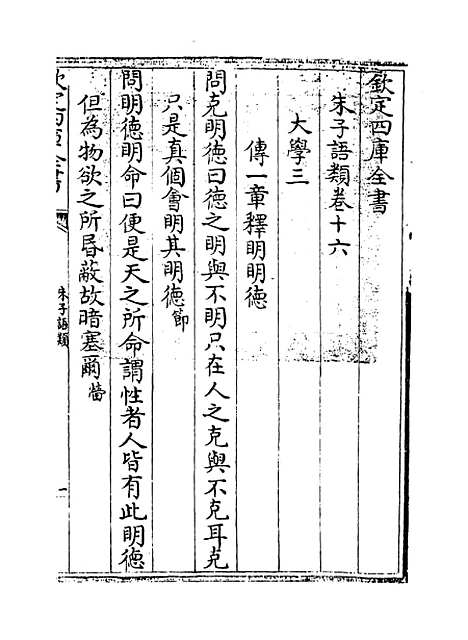 欽定四庫全書
朱子語類卷十六
大學三
傳一章釋明明德
問克明德曰德之明與不明只在人之克與不克耳克
只是真個會明其明德節
問明德明命曰便是天之所命謂性者人皆有此明德
但為物欲之所昬蔽故暗塞爾㽦
朱子語類
一